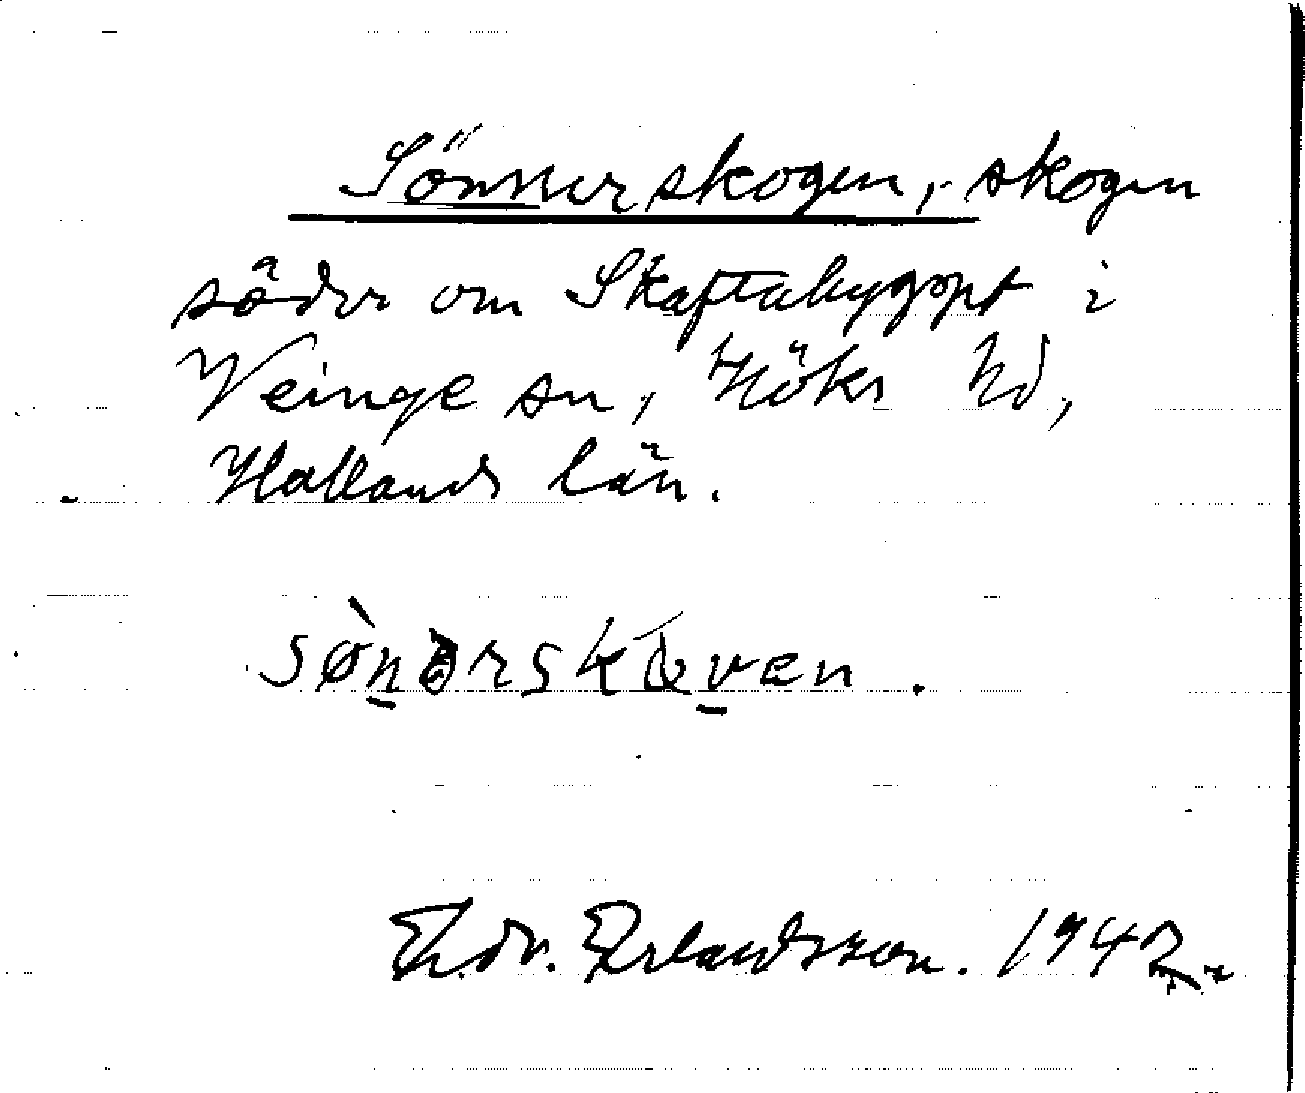 Sönnerskogen, skogen
söder om Skaftabygget i
Veinge sn, Höks hd,
Hallands län.
sø̀nərskɷven.
Edv. Erlandsson. 1942.